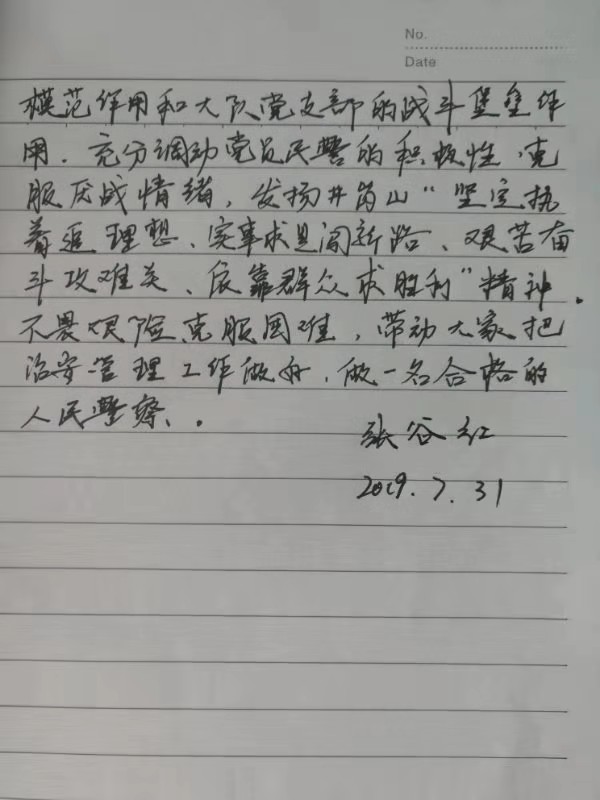 No.
Date
模范作用和大队党支部的战斗堡垒作
用．充分调动党员民警的积极性，克
服厌战情绪，发扬井岗山“坚定执
着追理想、实事求是闯新路、艰苦奋
斗攻难关、依靠群众求胜利”精神．
不畏艰险克服困难，带动大家把
治安管理工作做好．做一名合格的
人民警察．
张谷红
2019.7.31